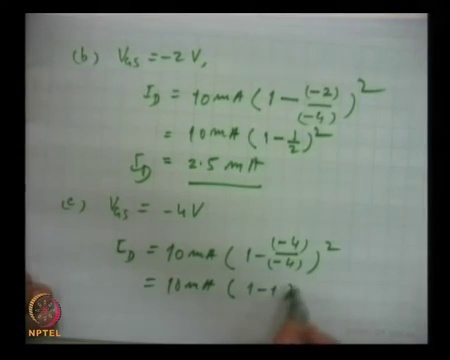 (b) VGS = -2 V,
ID = 10 mA ( 1 - (-2)/(-4) )²
= 10 mA ( 1 - 1/2 )²
ID = 2.5 mA
(c) VGS = -4V
ID = 10 mA ( 1 - (-4)/(-4) )²
= 10 mA ( 1 - 1
NPTEL